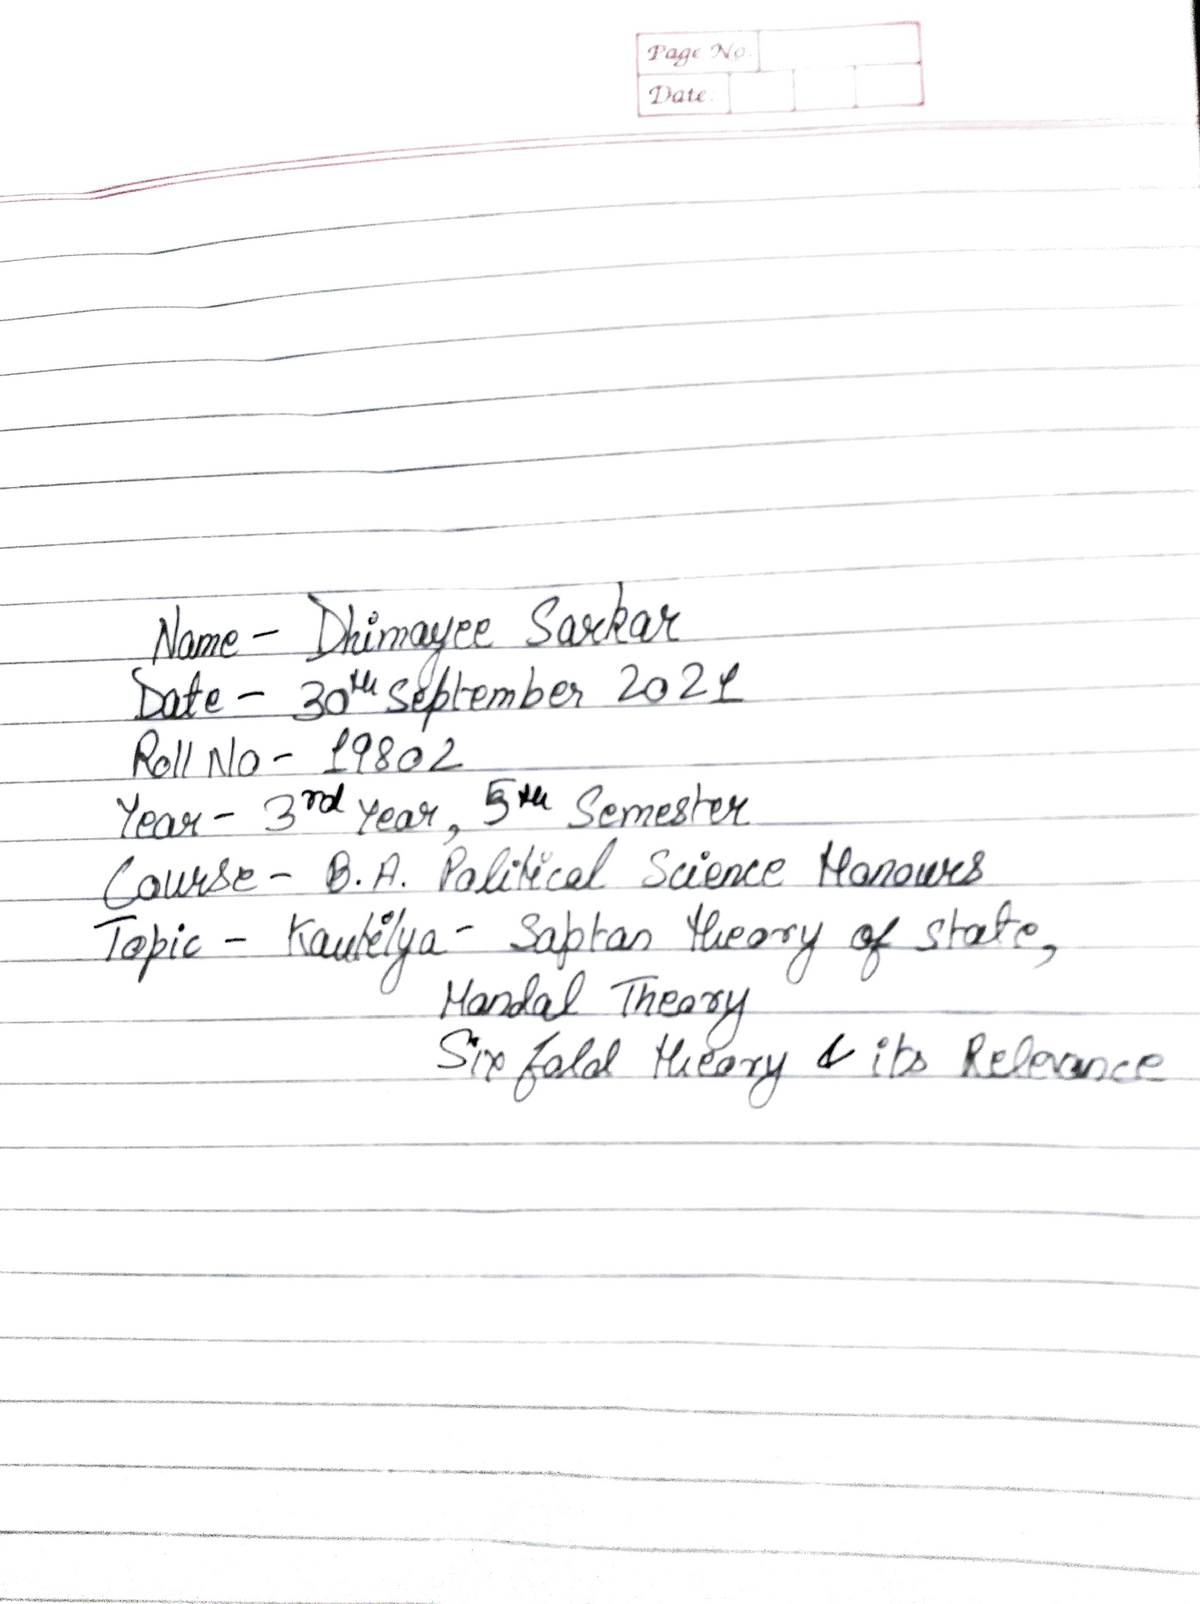 Page No.
Date.
Name - Dhimayee Sarkar
Date - 30th September 2021
Roll No - 19802
Year - 3rd Year, 5th Semester
Course - B.A. Political Science Honours
Topic - Kautilya - Saptan theory of state,
Mandal Theory
Six fold theory & its Relevance